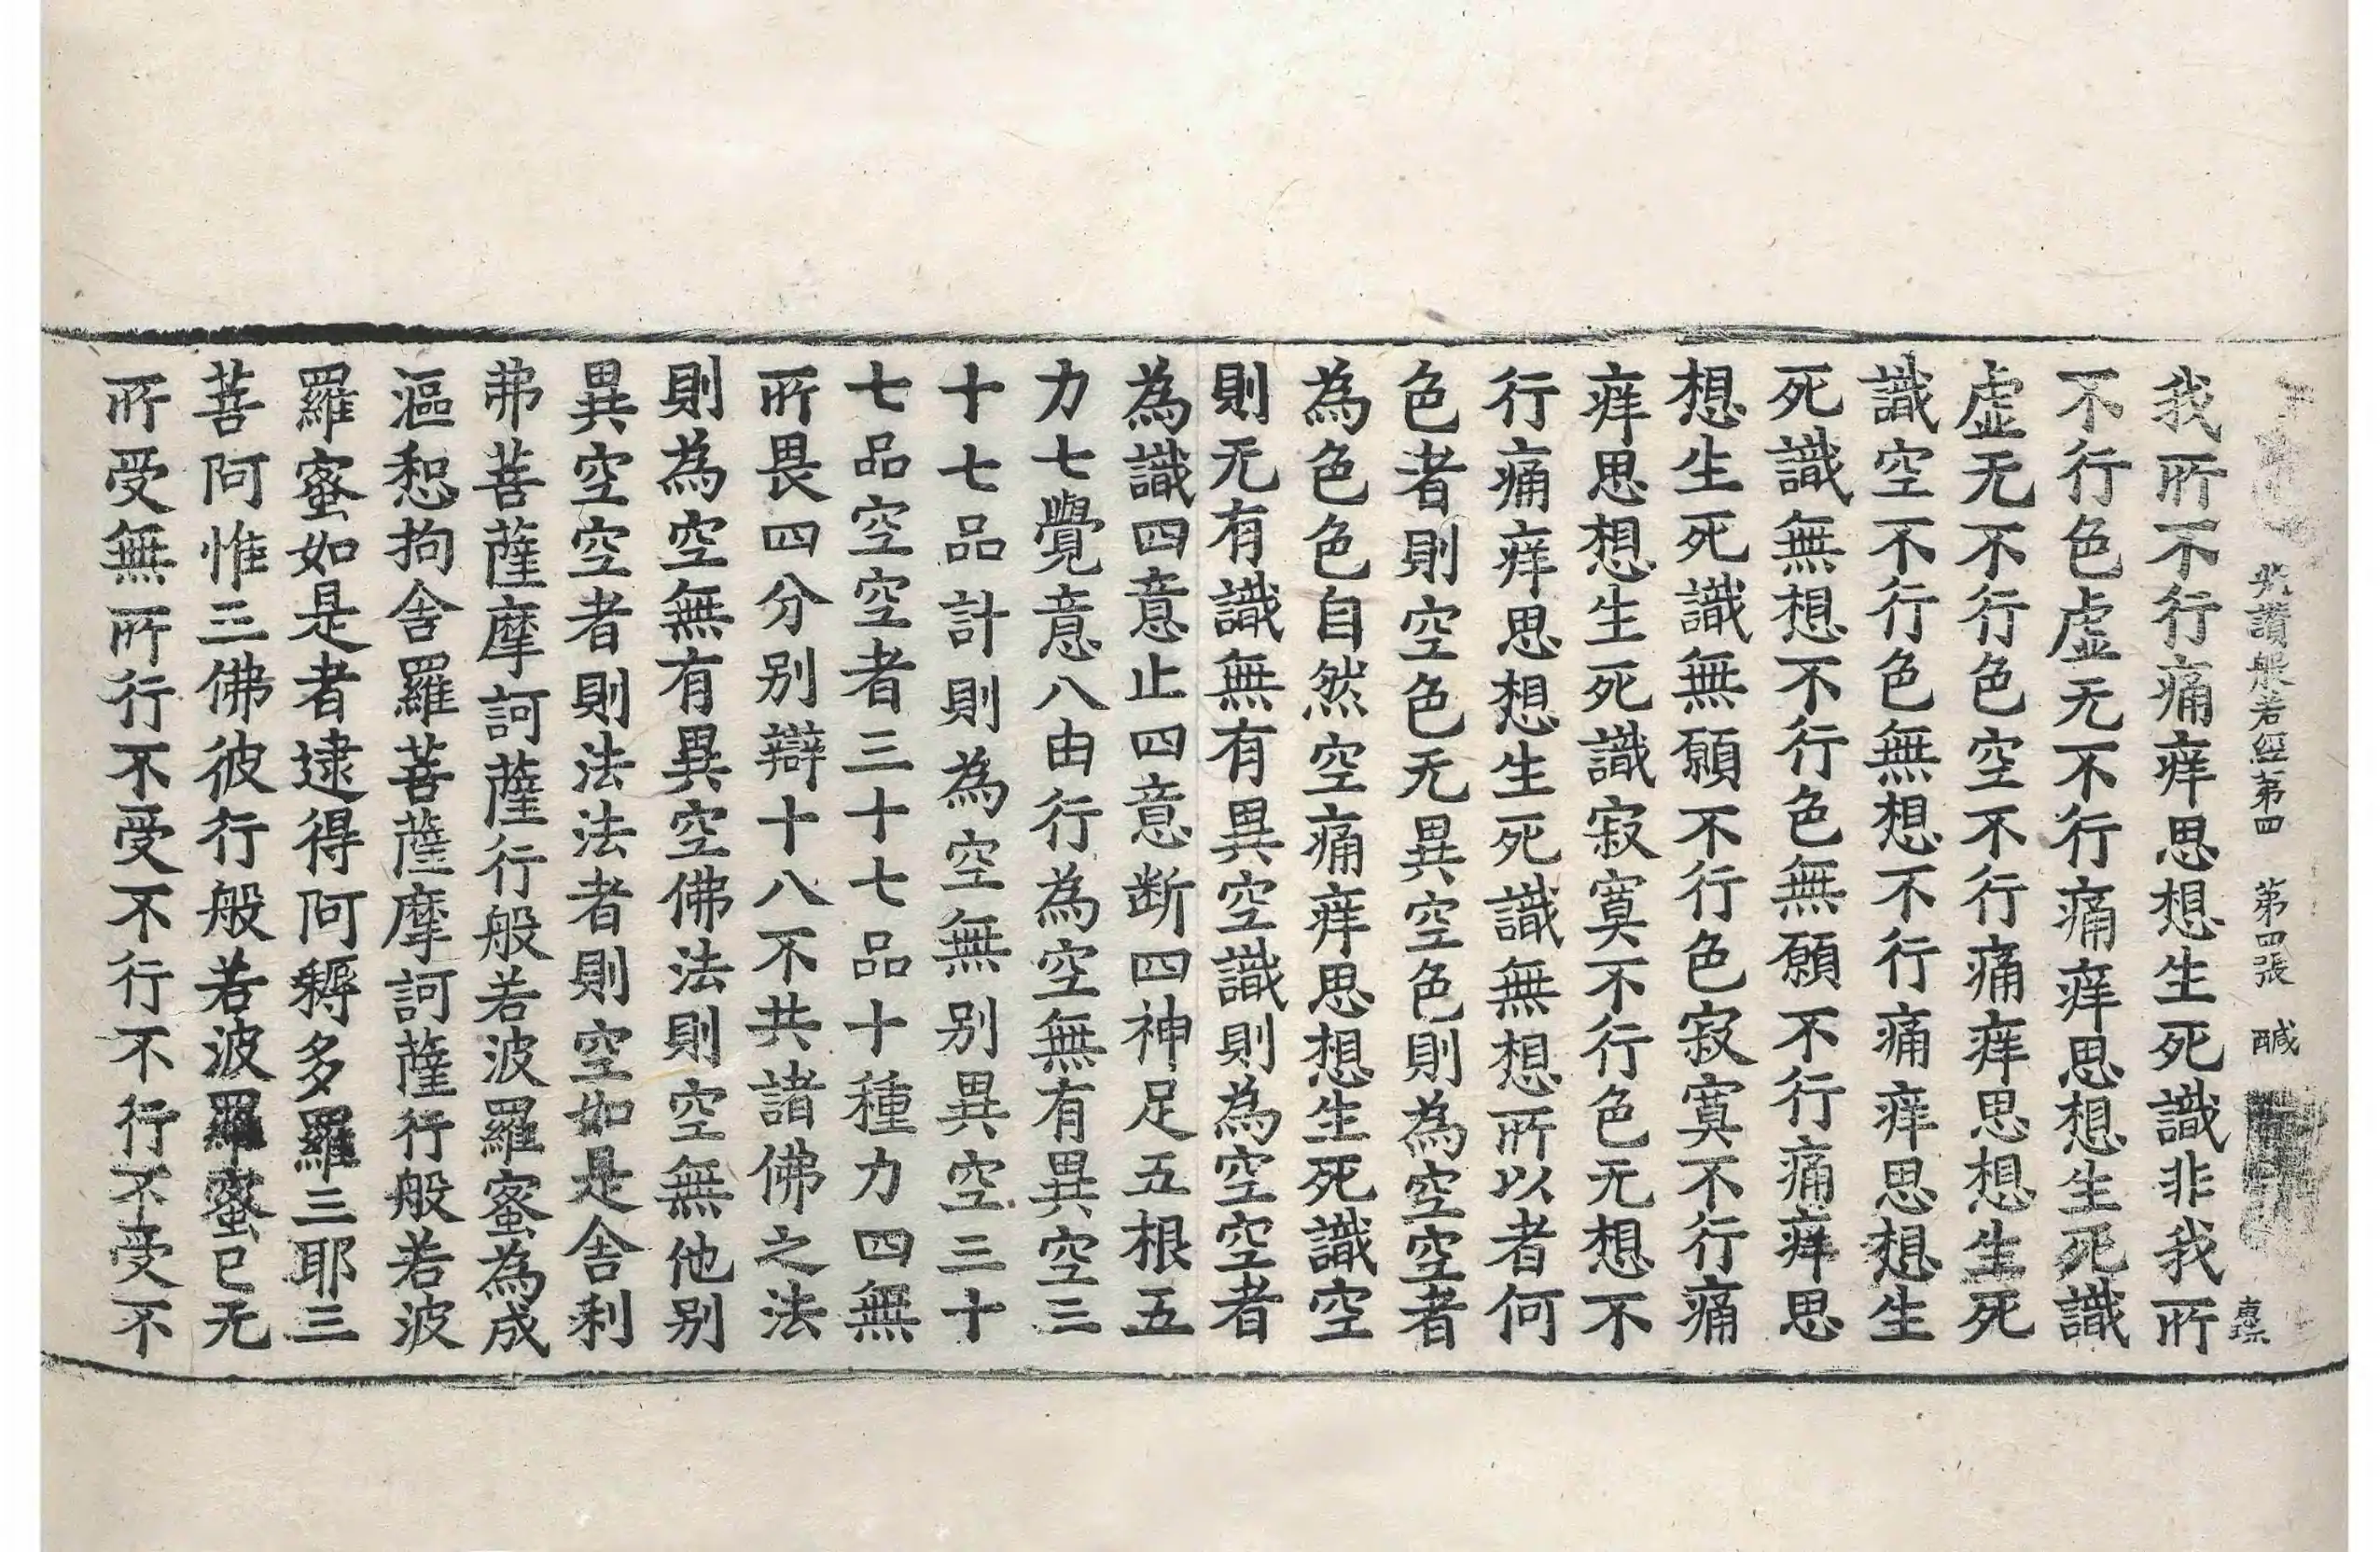 光讃般若經第四　第四張　醎
我所不行痛痒思想生死識非我所
不行色虛无不行痛痒思想生死識
虛无不行色空不行痛痒思想生死
識空不行色無想不行痛痒思想生
死識無想不行色無願不行痛痒思
想生死識無願不行色寂寞不行痛
痒思想生死識寂寞不行色无想不
行痛痒思想生死識無想所以者何
色者則空色无異空色則為空空者
為色色自然空痛痒思想生死識空
則无有識無有異空識則為空空者
為識四意止四意断四神足五根五
力七覺意八由行為空無有異空三
十七品計則為空無别異空三十
七品空空者三十七品十種力四無
所畏四分别辯十八不共諸佛之法
則為空無有異空佛法則空無他别
異空空者則法法者則空如是舍利
弗菩薩摩訶薩行般若波羅蜜為成
漚惒拘舍羅菩薩摩訶薩行般若波
羅蜜如是者逮得阿耨多羅三耶三
菩阿惟三佛彼行般若波羅蜜已无
所受無所行不受不行不行不受不